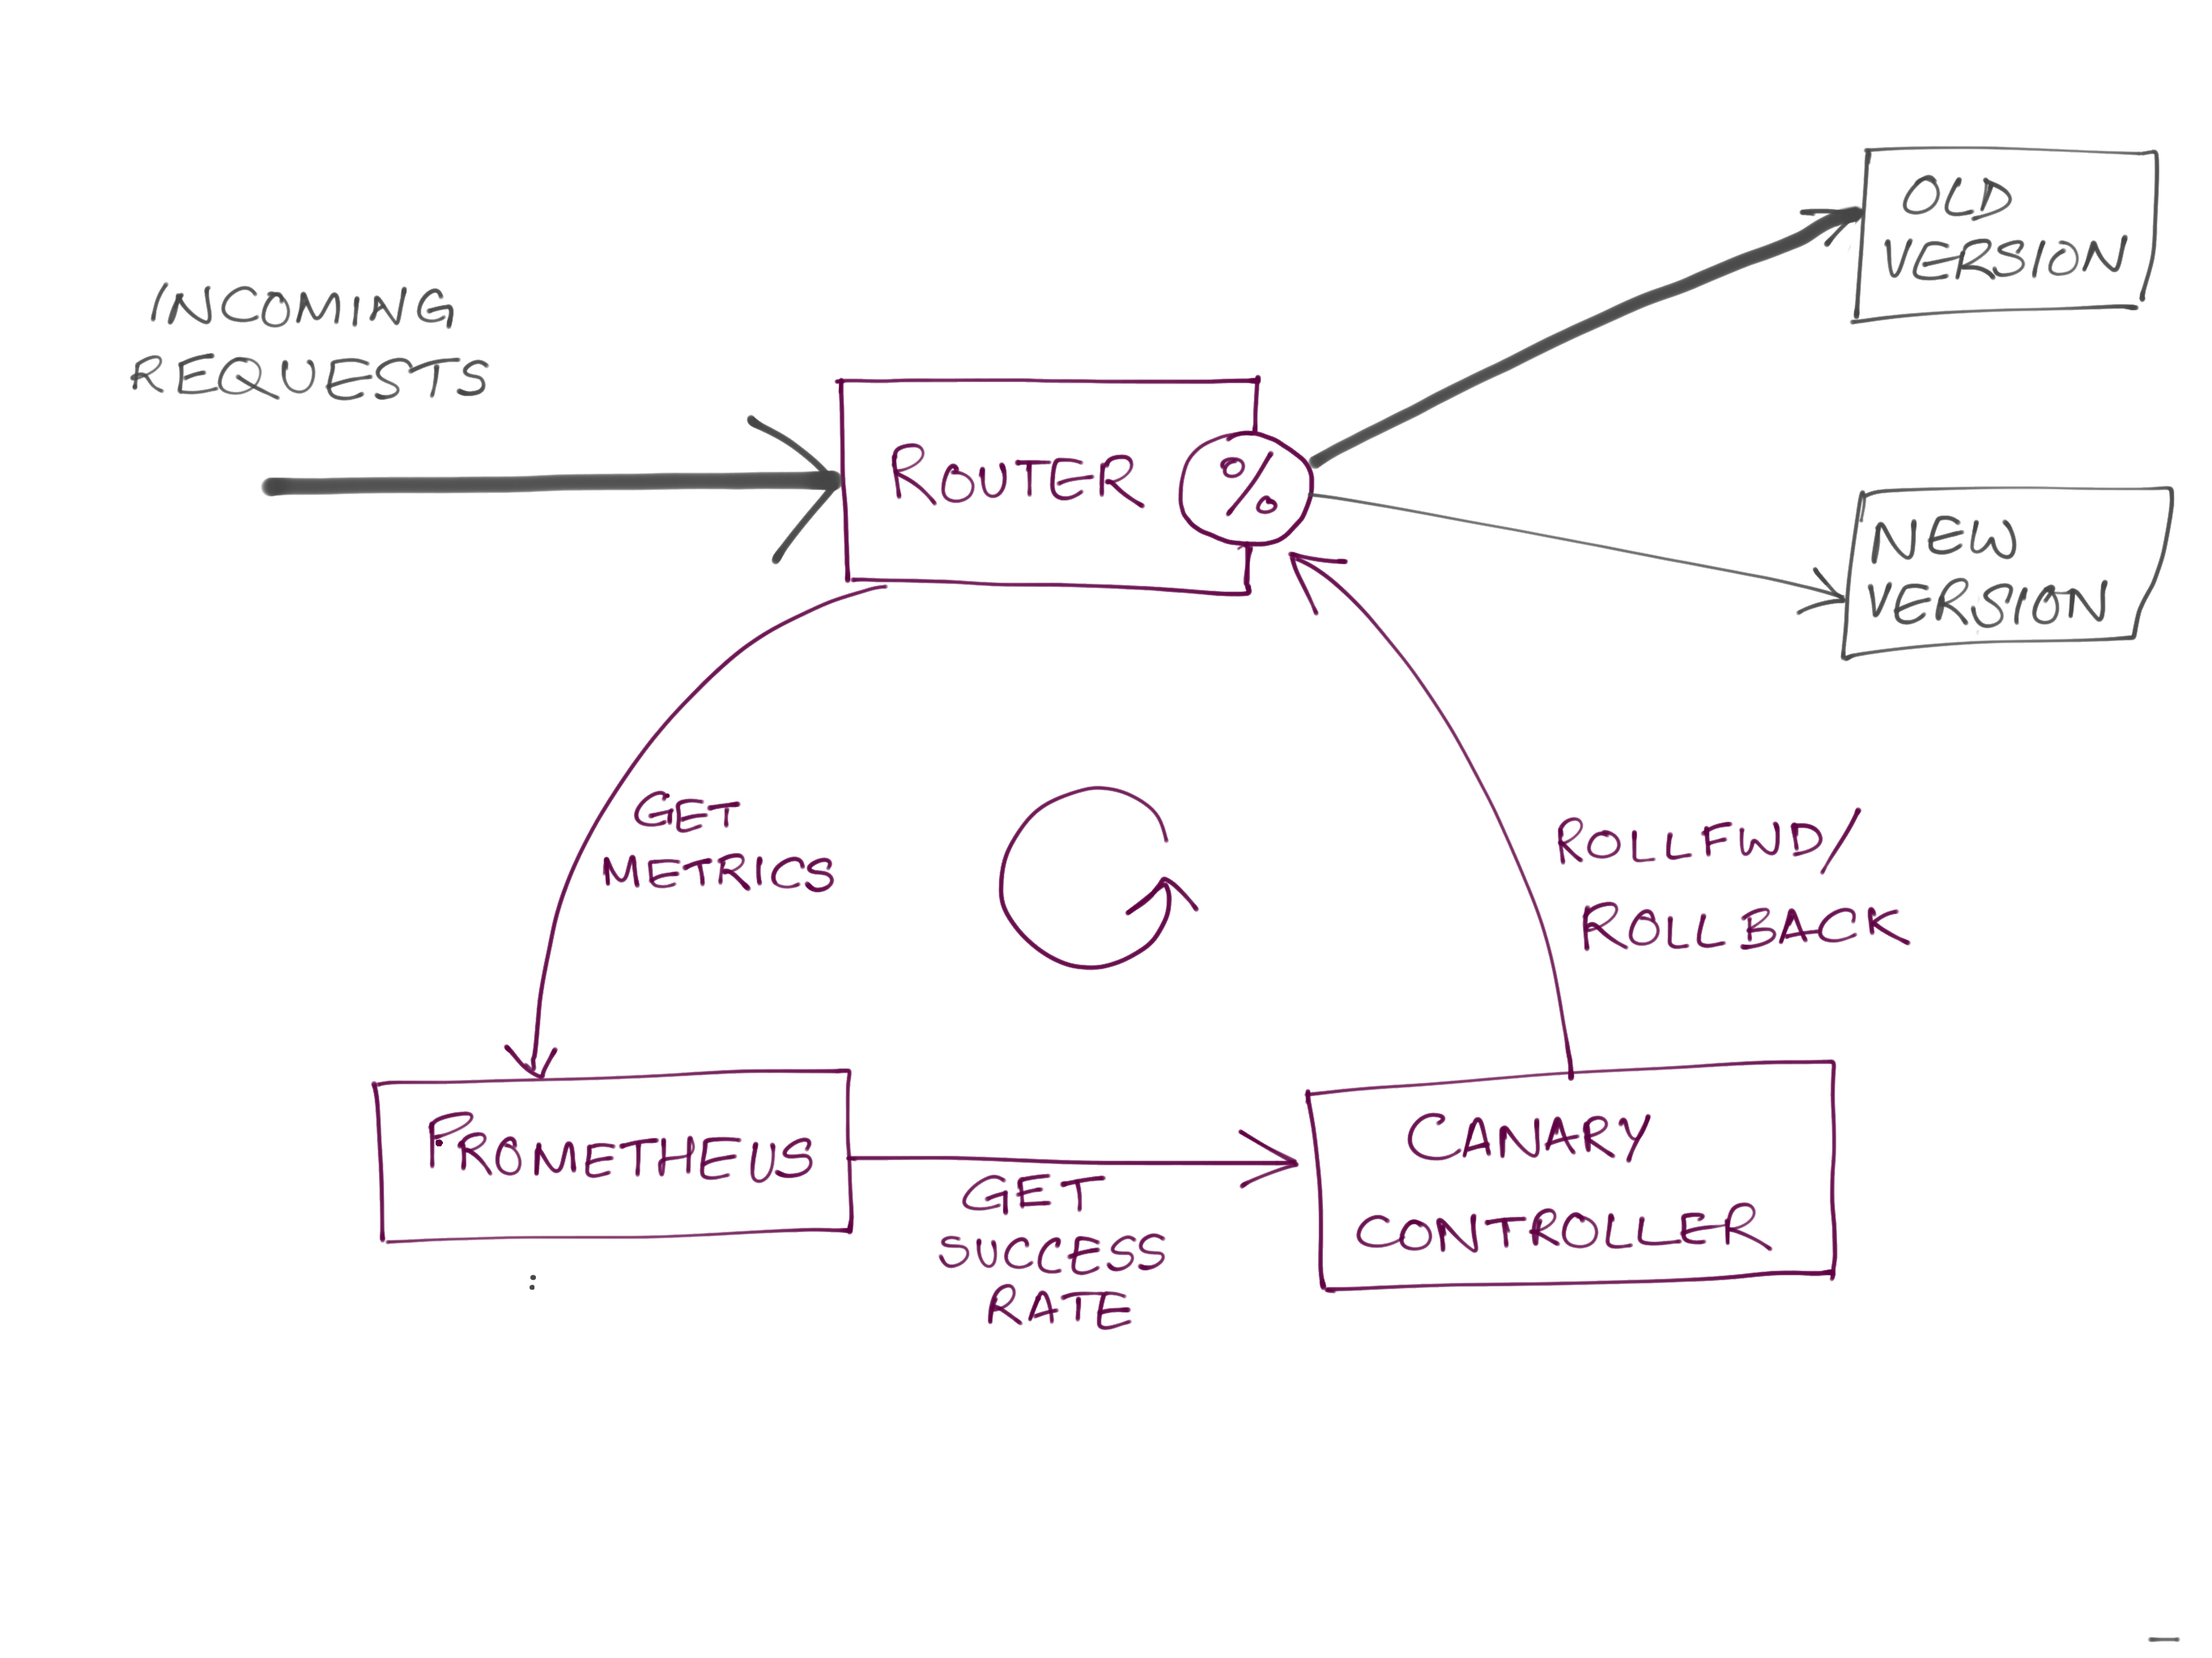 INCOMING
REQUESTS
ROUTER
%
OLD
VERSION
NEW
VERSION
GET
METRICS
ROLLFWD/
ROLLBACK
PROMETHEUS
GET
SUCCESS
RATE
CANARY
CONTROLLER